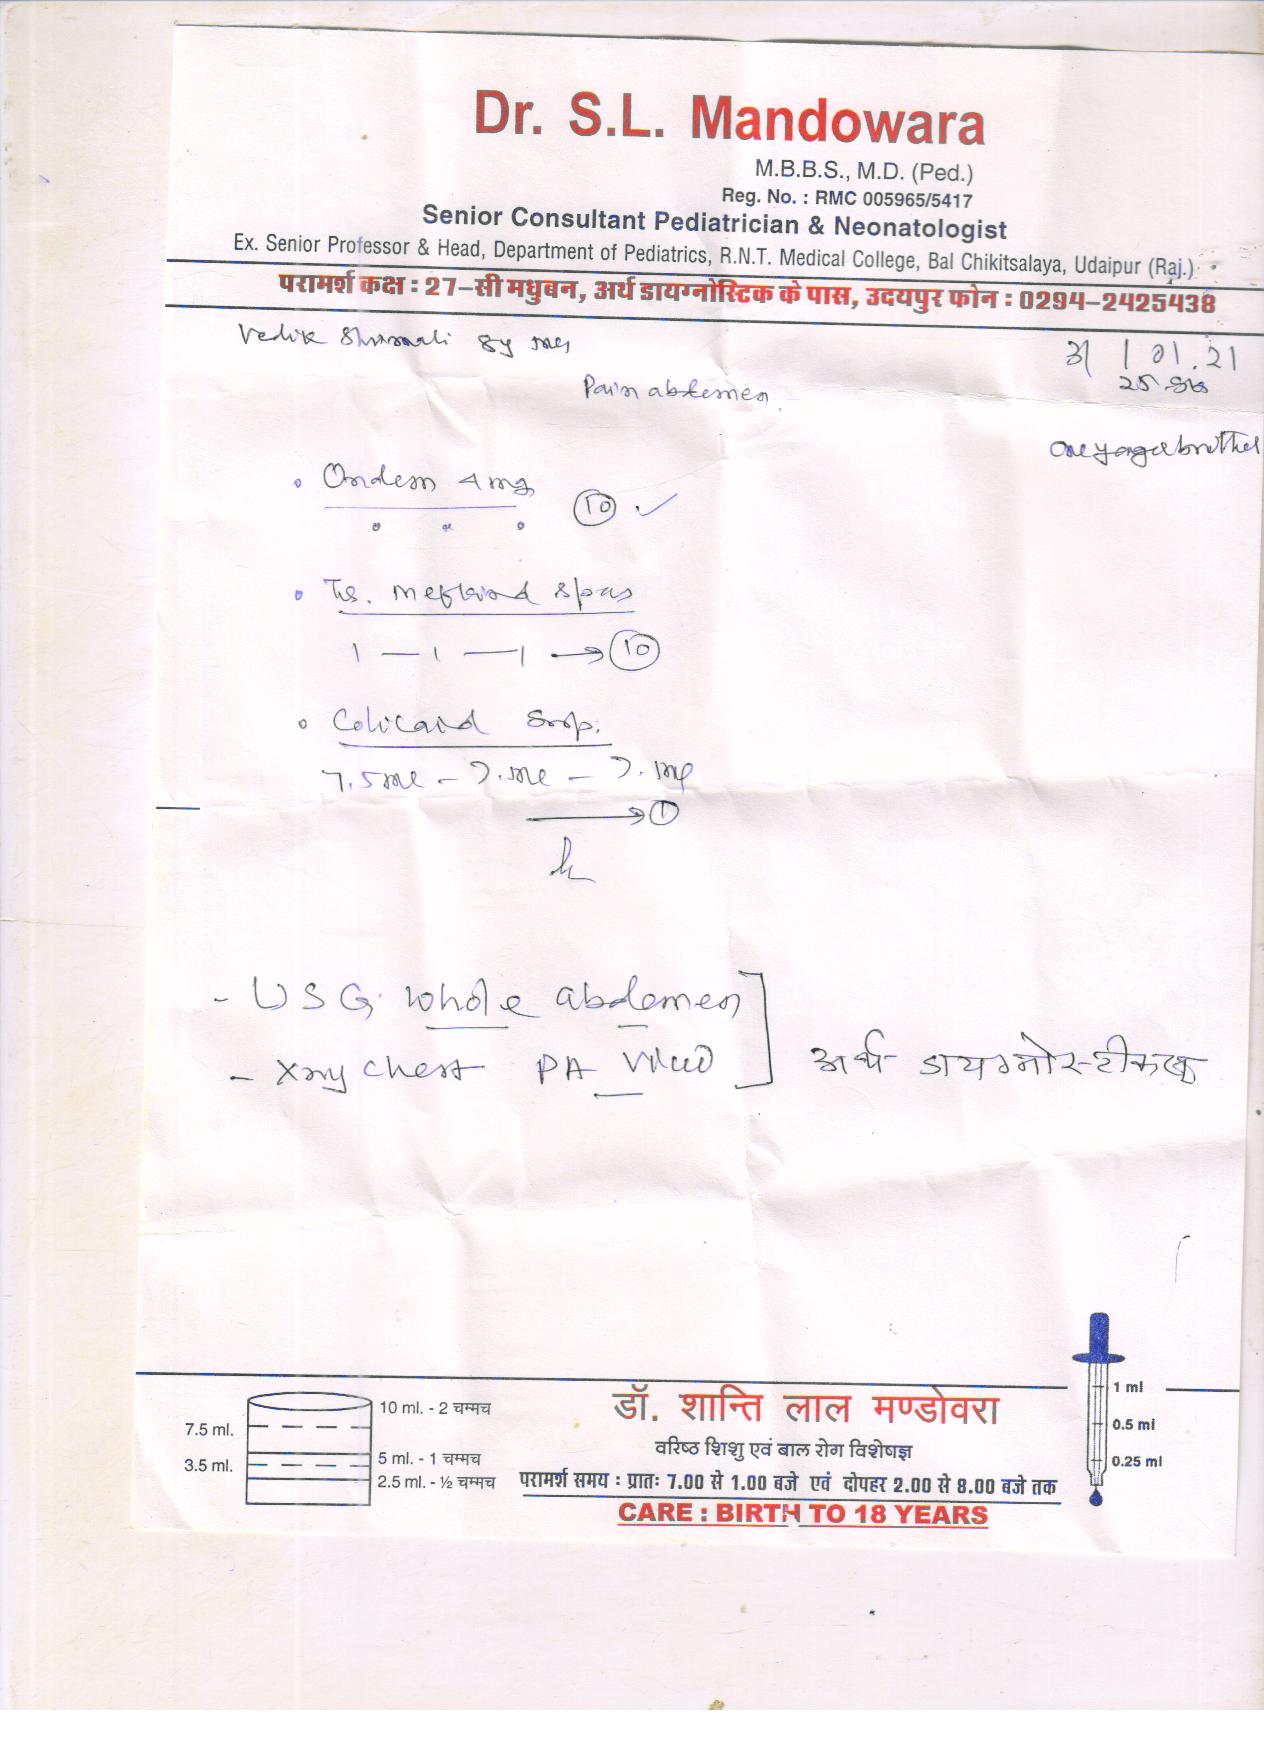 Dr. S.L. Mandowara
M.B.B.S., M.D. (Ped.)
Reg. No. : RMC 005965/5417
Senior Consultant Pediatrician & Neonatologist
Ex. Senior Professor & Head, Department of Pediatrics, R.N.T. Medical College, Bal Chikitsalaya, Udaipur (Raj.)
परामर्श कक्ष : 27-सी मधुबन, अर्थ डायग्नोस्टिक के पास, उदयपुर फोन : 0294-2425438
Vedik 8y
01.21
25
Pain abdomen.
One younger brother
Ondem 4mg
10
Tb. Meftal spas
1 — 1 — 1 → 10
Colicaid Syrp.
7.5ml -
→ 1
- USG. whole abdomen
- Xray chest PA View
अर्थ डायग्नोस्टीकस
डॉ. शान्ति लाल मण्डोवरा
वरिष्ठ शिशु एवं बाल रोग विशेषज्ञ
परामर्श समय : प्रातः 7.00 से 1.00 बजे एवं दोपहर 2.00 से 8.00 बजे तक
CARE : BIRTH TO 18 YEARS
10 ml. - 2 चम्मच
7.5 ml.
5 ml. - 1 चम्मच
3.5 ml.
2.5 ml. - ½ चम्मच
1 ml
0.5 ml
0.25 ml